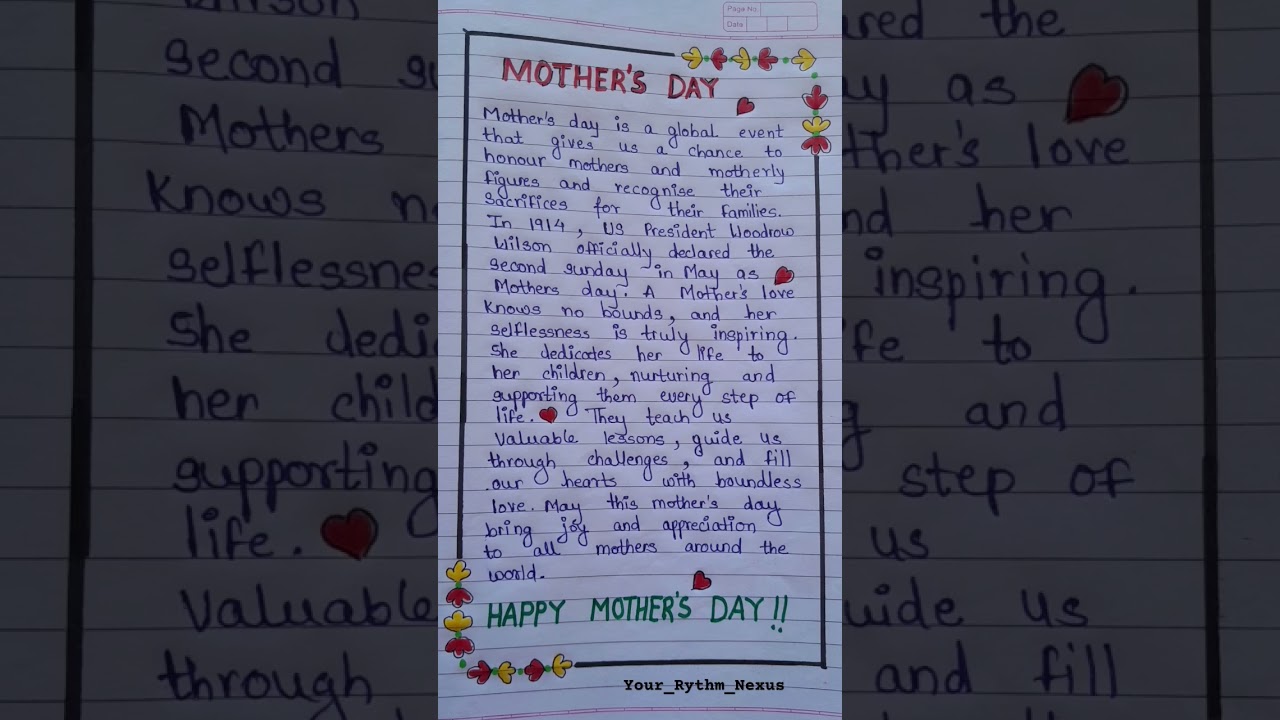 Page No.
Date
MOTHER'S DAY
Mother's day is a global event
that gives us a chance to
honour mothers and motherly
figures and recognise their
sacrifices for their families.
In 1914, US President Woodrow
Wilson officially declared the
second sunday in May as
Mothers day. A Mother's love
knows no bounds, and her
selflessness is truly inspiring.
She dedicates her life to
her children, nurturing and
supporting them every step of
life. They teach us
valuable lessons, guide us
through challenges, and fill
our hearts with boundless
love. May this mother's day
bring joy and appreciation
to all mothers around the
world.
HAPPY MOTHER'S DAY!!
Your_Rythm_Nexus